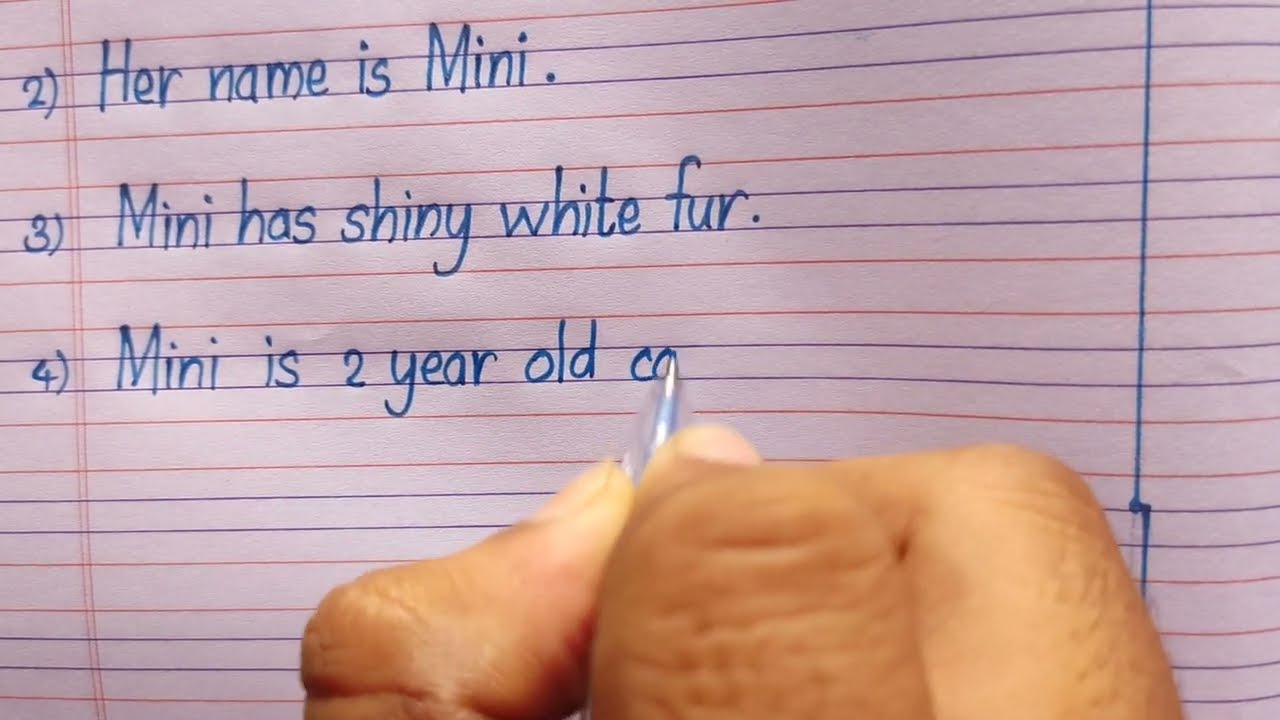 2) Her name is Mini.
3) Mini has shiny white fur.
4) Mini is 2 year old ca